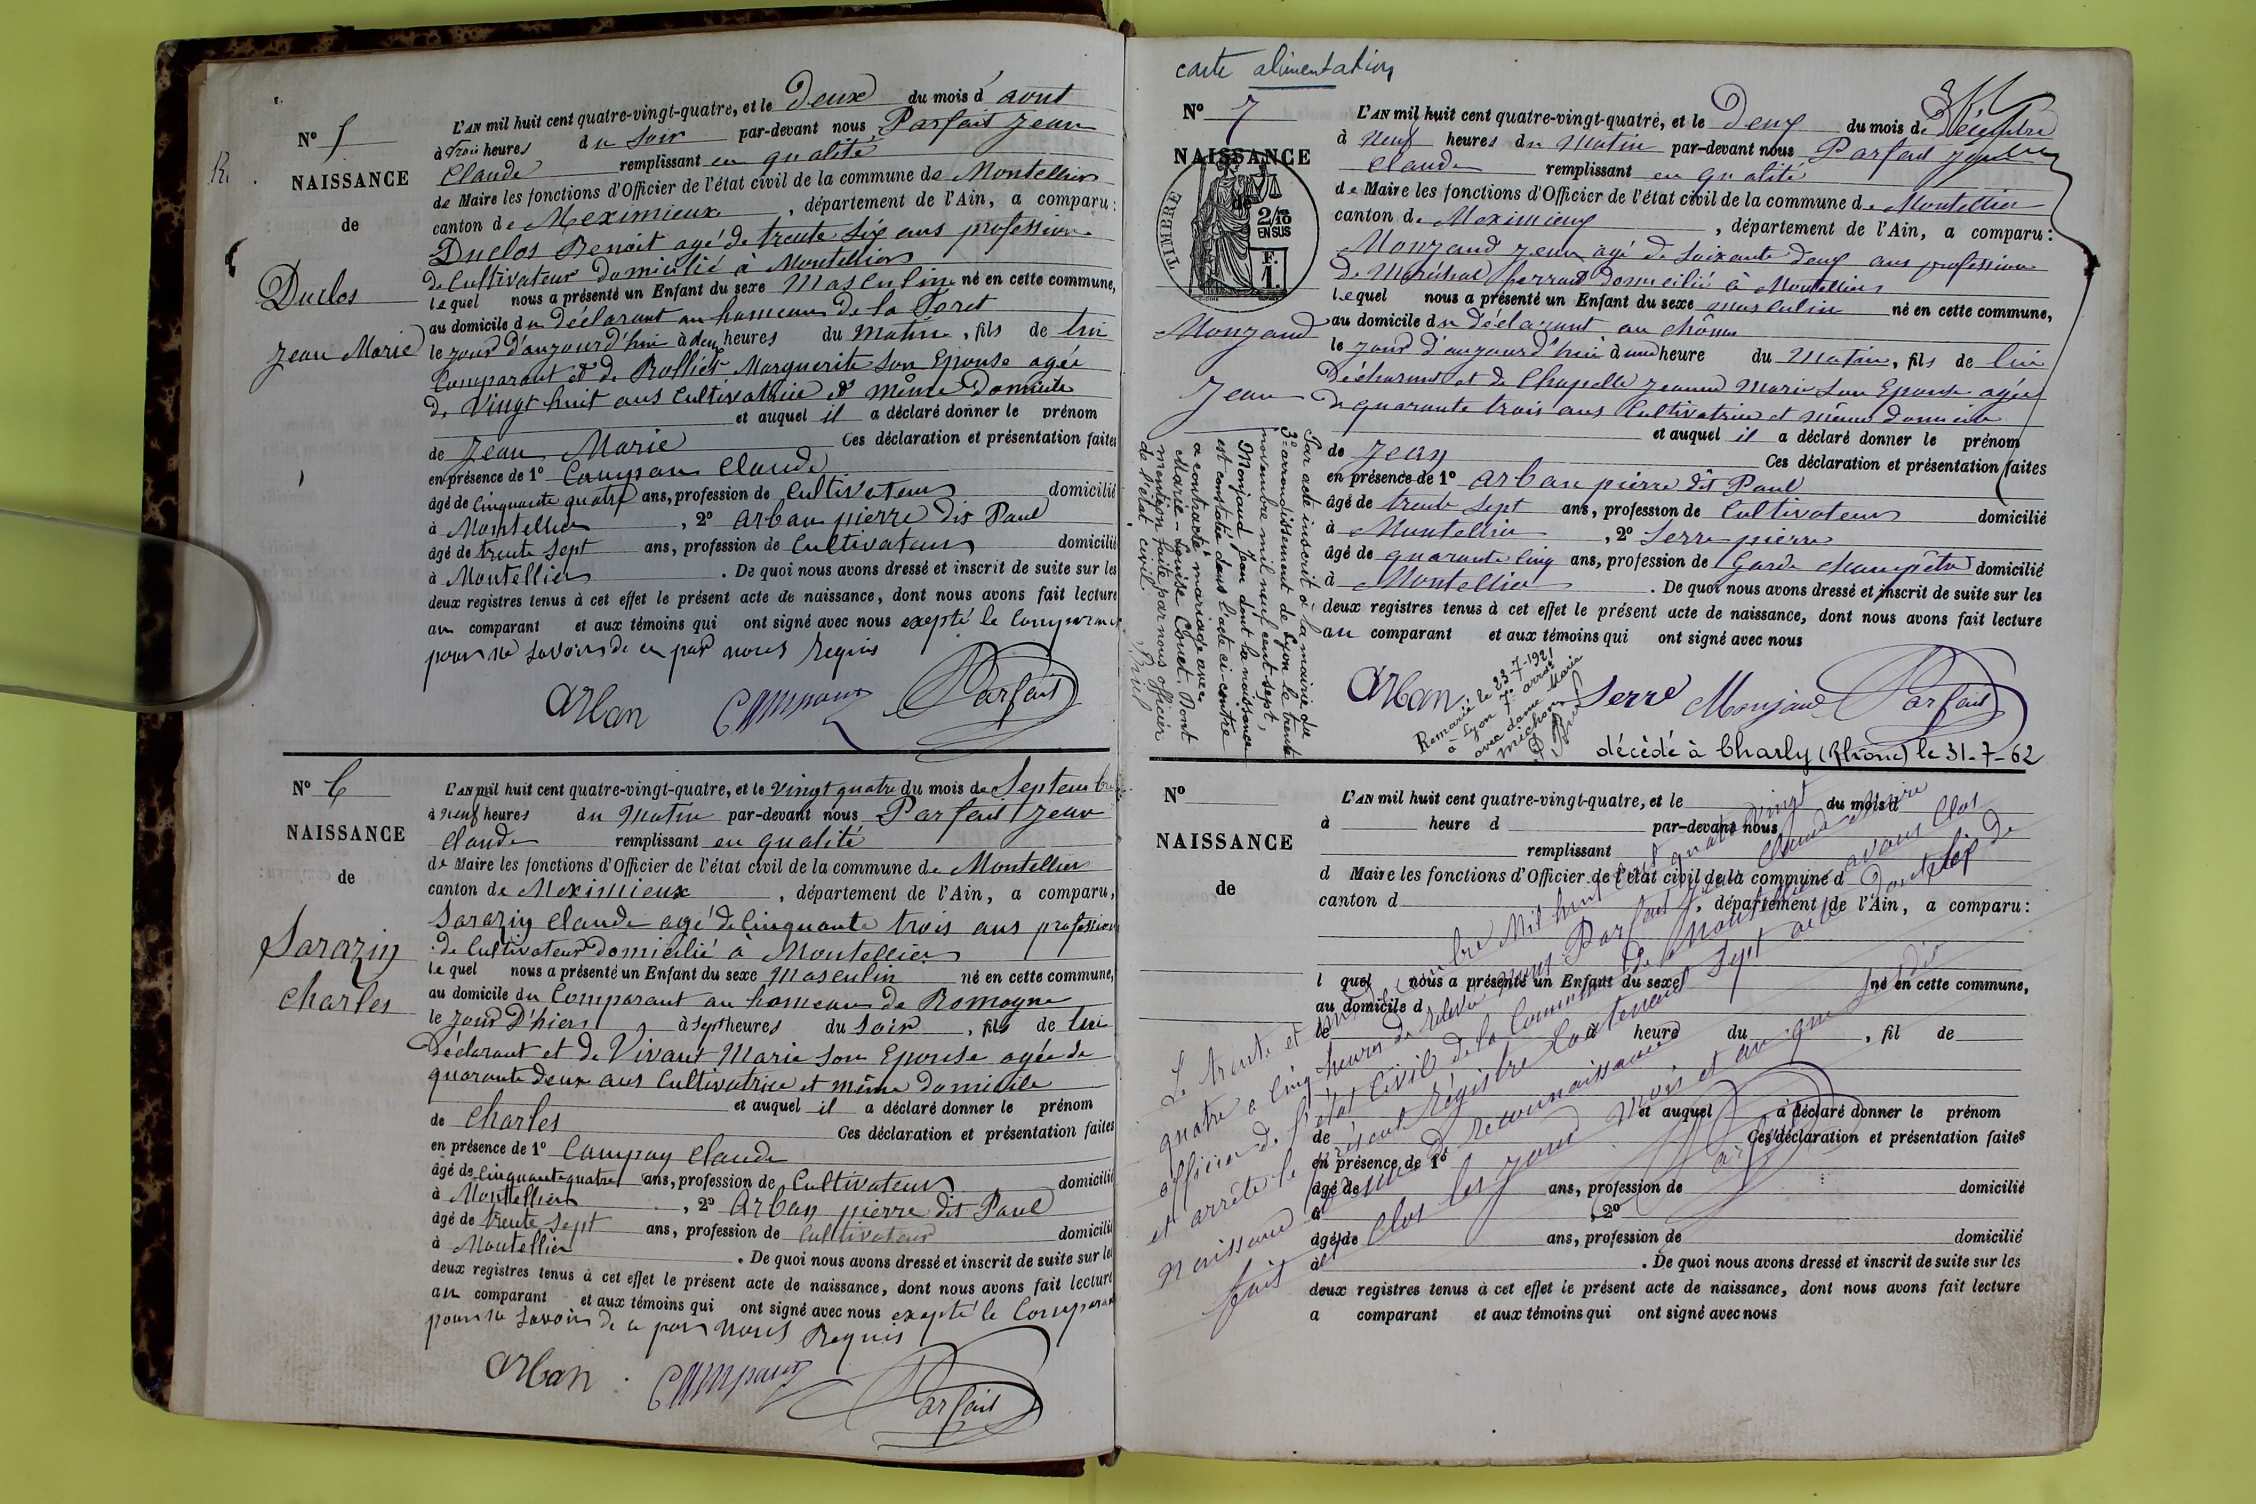 N° 5
NAISSANCE
de
Duclos
Jean Marie
L'AN mil huit cent quatre-vingt-quatre, et le Deux du mois d'aout
à Trois heures du Soir par-devant nous Parfait Jean
Claude remplissant en qualité
de Maire les fonctions d'Officier de l'état civil de la commune de Montellier
canton de Meximieux, département de l'Ain, a comparu:
Duclos Benoit agé de trente six ans profession
de Cultivateur Domicilié à Montellier
lequel nous a présenté un Enfant du sexe Masculin né en cette commune,
au domicile du Déclarant au hameau de la Foret
le jour d'aujourd'hui à deux heures du matin, fils de lui
Comparant et de Rolliet Marguerite Son Epouse agée
de Vingt huit ans Cultivatrice et même Domicile
et auquel il a déclaré donner le prénom
de Jean Marie Ces déclaration et présentation faites
en présence de 1° Campan Claude
âgé de Cinquante quatre ans, profession de Cultivateur domicilié
à Montellier, 2° Arban pierre dit Paul
âgé de trente Sept ans, profession de Cultivateur domicilié
à Montellier. De quoi nous avons dressé et inscrit de suite sur les
deux registres tenus à cet effet le présent acte de naissance, dont nous avons fait lecture
au comparant et aux témoins qui ont signé avec nous exepté le Comparant
pour ne Savoir de ce par nous Requis
Arban Campan Parfait
N° 6
NAISSANCE
de
Sarazin
Charles
L'AN mil huit cent quatre-vingt-quatre, et le Vingt quatre du mois de Septembre
à neuf heures du Matin par-devant nous Parfait Jean
Claude remplissant en qualité
de Maire les fonctions d'Officier de l'état civil de la commune de Montellier
canton de Meximieux, département de l'Ain, a comparu,
Sarazin Claude agé de Cinquante trois ans profession
de Cultivateur Domicilié à Montellier
le quel nous a présenté un Enfant du sexe Masculin né en cette commune,
au domicile du Comparant au hameau de Romagne
le jour D'hier à Sept heures du Soir, fils de lui
Déclarant et de Vivant Marie Son Epouse agée de
quarante deux ans Cultivatrice et même Domicile
et auquel il a déclaré donner le prénom
de Charles Ces déclaration et présentation faites
en présence de 1° Campan Claude
âgé de Cinquante quatre ans, profession de Cultivateur domicilié
à Montellier, 2° Arban pierre dit Paul
âgé de trente Sept ans, profession de Cultivateur domicilié
à Montellier. De quoi nous avons dressé et inscrit de suite sur les
deux registres tenus à cet effet le présent acte de naissance, dont nous avons fait lecture
au comparant et aux témoins qui ont signé avec nous exepté le Comparant
pour ne Savoir de ce par nous Requis
Arban Campan Parfait
carte alimentation
N° 7
NAISSANCE
de
TIMBRE
2/10
EN SUS
F.
1.
Monjaud
Jean
L'AN mil huit cent quatre-vingt-quatre, et le Deux du mois de Décembre
à Neuf heures du Matin par-devant nous Parfait Jean
Claude remplissant en qualité
de Maire les fonctions d'Officier de l'état civil de la commune de Montellier
canton de Meximieux, département de l'Ain, a comparu:
Monjaud Jean agé de Soixante deux ans profession
de Maréchal ferrand Domicilié à Montellier
lequel nous a présenté un Enfant du sexe masculin né en cette commune,
au domicile du Déclarant au chône
le jour d'aujourd'hui à une heure du Matin, fils de lui
Déclarant et de Chapelle Jeanne Marie Son Epouse agée
de quarante trois ans Cultivatrice et même domicile
et auquel il a déclaré donner le prénom
de Jean Ces déclaration et présentation faites
en présence de 1° Arban pierre dit Paul
âgé de trente Sept ans, profession de Cultivateur domicilié
à Montellier, 2° Serre pierre
âgé de quarante cinq ans, profession de Garde champêtre domicilié
à Montellier. De quoi nous avons dressé et inscrit de suite sur les
deux registres tenus à cet effet le présent acte de naissance, dont nous avons fait lecture
au comparant et aux témoins qui ont signé avec nous
Arban Serre Monjaud Parfait
Par acte inscrit à la mairie du
3° arrondissement de Lyon le trente
novembre mil neuf cent sept,
Monjaud Jean dont la naissance
est constatée dans l'acte ci-contre
a contracté mariage avec
Marie-Louise Cornet. Dont
mention faite par nous officier
de l'état civil.
Remarié le 23-7-1921
à Lyon 7e arrdt
avec dame Marie
Michon
décédé à Charly (Rhône) le 31-7-62
N°
NAISSANCE
de
L'AN mil huit cent quatre-vingt-quatre, et le du mois d
à heure d par-devant nous
remplissant
d Maire les fonctions d'Officier de l'état civil de la commune d
canton d, département de l'Ain, a comparu:
l quel nous a présenté un Enfant du sexe né en cette commune,
au domicile d
le à heure du, fil de
et auquel a déclaré donner le prénom
de Ces déclaration et présentation faites
en présence de 1°
âgé de ans, profession de domicilié
à, 2°
âgé de ans, profession de domicilié
à. De quoi nous avons dressé et inscrit de suite sur les
deux registres tenus à cet effet le présent acte de naissance, dont nous avons fait lecture
a comparant et aux témoins qui ont signé avec nous
Le trente et un Décembre Mil huit cent quatre vingt
quatre a Cinq heures du nous Parfait Jean Claude Maire
officier de l'état Civil de la Commune de Montellier avons Clos
et arrêté le présent Régistre Contenant Sept actes Dont Sept de
naissance de reconnaissance
fait et Clos les jour mois et an que dit
Parfait